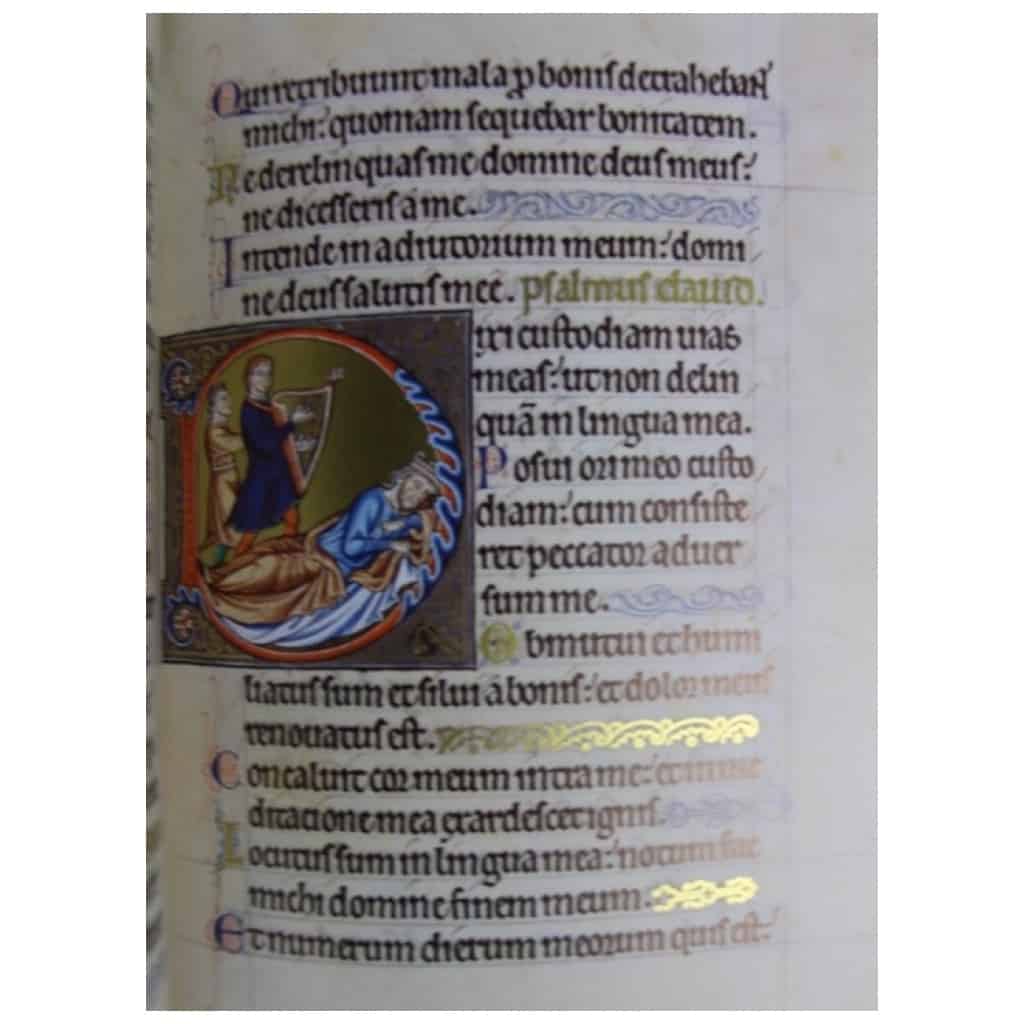 Qui retribuunt mala ꝓ bonis detrahebant
michi: quoniam sequebar bonitatem.
Ne derelinquas me domine deus meus:
ne discesseris a me.
Intende in adiutorium meum: domi
ne deus salutis mee. psalmus dauid.
Dixi custodiam uias
meas: ut non delin
quā in lingua mea.
Posui ori meo custo
diam: cum consiste
ret peccator aduer
sum me.
Obmutui et humi
liatus sum et silui a bonis: et dolor meus
renouatus est.
Concaluit cor meum intra me: et in me
ditatione mea exardescet ignis.
Locutus sum in lingua mea: notum fac
michi domine finem meum.
Et numerum dierum meorum quis est: